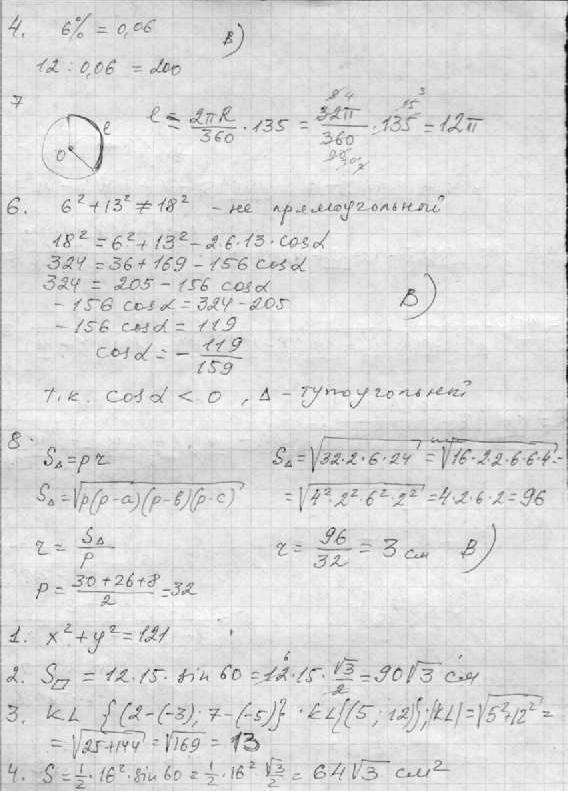 4. 6% = 0,06 В)
12 : 0,06 = 200
7
O l l = 2πR/360 · 135 = 32π/360 · 135 = 12π
6. 6² + 13² ≠ 18² - не прямоугольный
18² = 6² + 13² - 2·6·13·cosα
324 = 36 + 169 - 156 cosα
324 = 205 - 156 cosα
- 156 cosα = 324 - 205 В)
- 156 cosα = 119
cosα = - 119/159
т.к. cosα < 0, Δ - тупоугольный
8.
S_Δ = pr S_Δ = √(32·2·6·24) = √(16·2·2·6·6·4) =
S_Δ = √(p(p-a)(p-b)(p-c)) = √(4²·2²·6²·2²) = 4·2·6·2 = 96
r = S_Δ/P r = 96/32 = 3 см В)
P = (30+26+8)/2 = 32
1. x² + y² = 121
2. S▱ = 12·15·sin 60 = 12·15·√3/2 = 90√3 см
3. KL {(2-(-3); 7-(-5)} · KL{(5; 12)}; |KL| = √(5²+12²) =
= √(25+144) = √169 = 13
4. S = 1/2·16²·sin 60 = 1/2·16² √3/2 = 64√3 см²